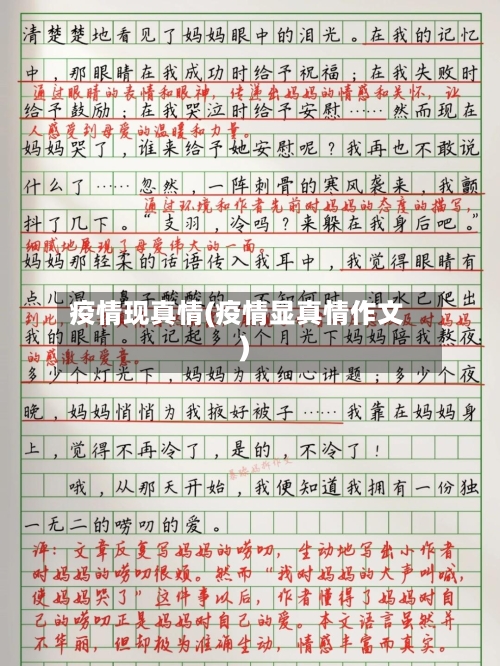 清楚楚地看见了妈妈眼中的泪光。在我的记忆
中，那眼睛在我成功时给予祝福；在我失败时
通过眼睛的表情和眼神，传递出妈妈的情感和关怀，让
给予鼓励；在我哭泣时给予安慰……然而现在
人感受到母爱的温暖和力量。
妈妈哭了，谁来给予她安慰呢？我再也不敢说
什么了……忽然，一阵刺骨的寒风袭来，我颤
通过环境和作者先前对妈妈的态度的描写，
抖了几下。“支羽，冷吗？来躲在我身后吧。”
细腻地展现了母爱伟大的一面。
妈妈那轻柔的话语传入我耳中，我觉得眼睛有
点儿湿，鼻子酸酸的
时，泪水已爬出
到此，
对妈妈
疫情现真情(疫情显真情作文
)
我的眼睛。我记起多少个月光下妈妈陪我熬夜，
的感激和爱意。
多少个灯光下，妈妈为我细心讲题；多少个夜
晚，妈妈悄悄为我掖好被子……我靠在妈妈身
上，觉得不再冷了，是的，不冷了！
哦，从那天开始，我便知道我拥有一份独
一无二的唠叨的爱。
评：文章反复写妈妈的唠叨，生动地写出小作者
对妈妈的唠叨很烦。然而“我对妈妈的大声叫喊，
使妈妈哭了”这件事以后，作者懂得了妈妈对自
己的唠叨正是妈妈对自己的爱。本文语言虽然并
不华丽，但却极为准确生动，情感丰富而真实。